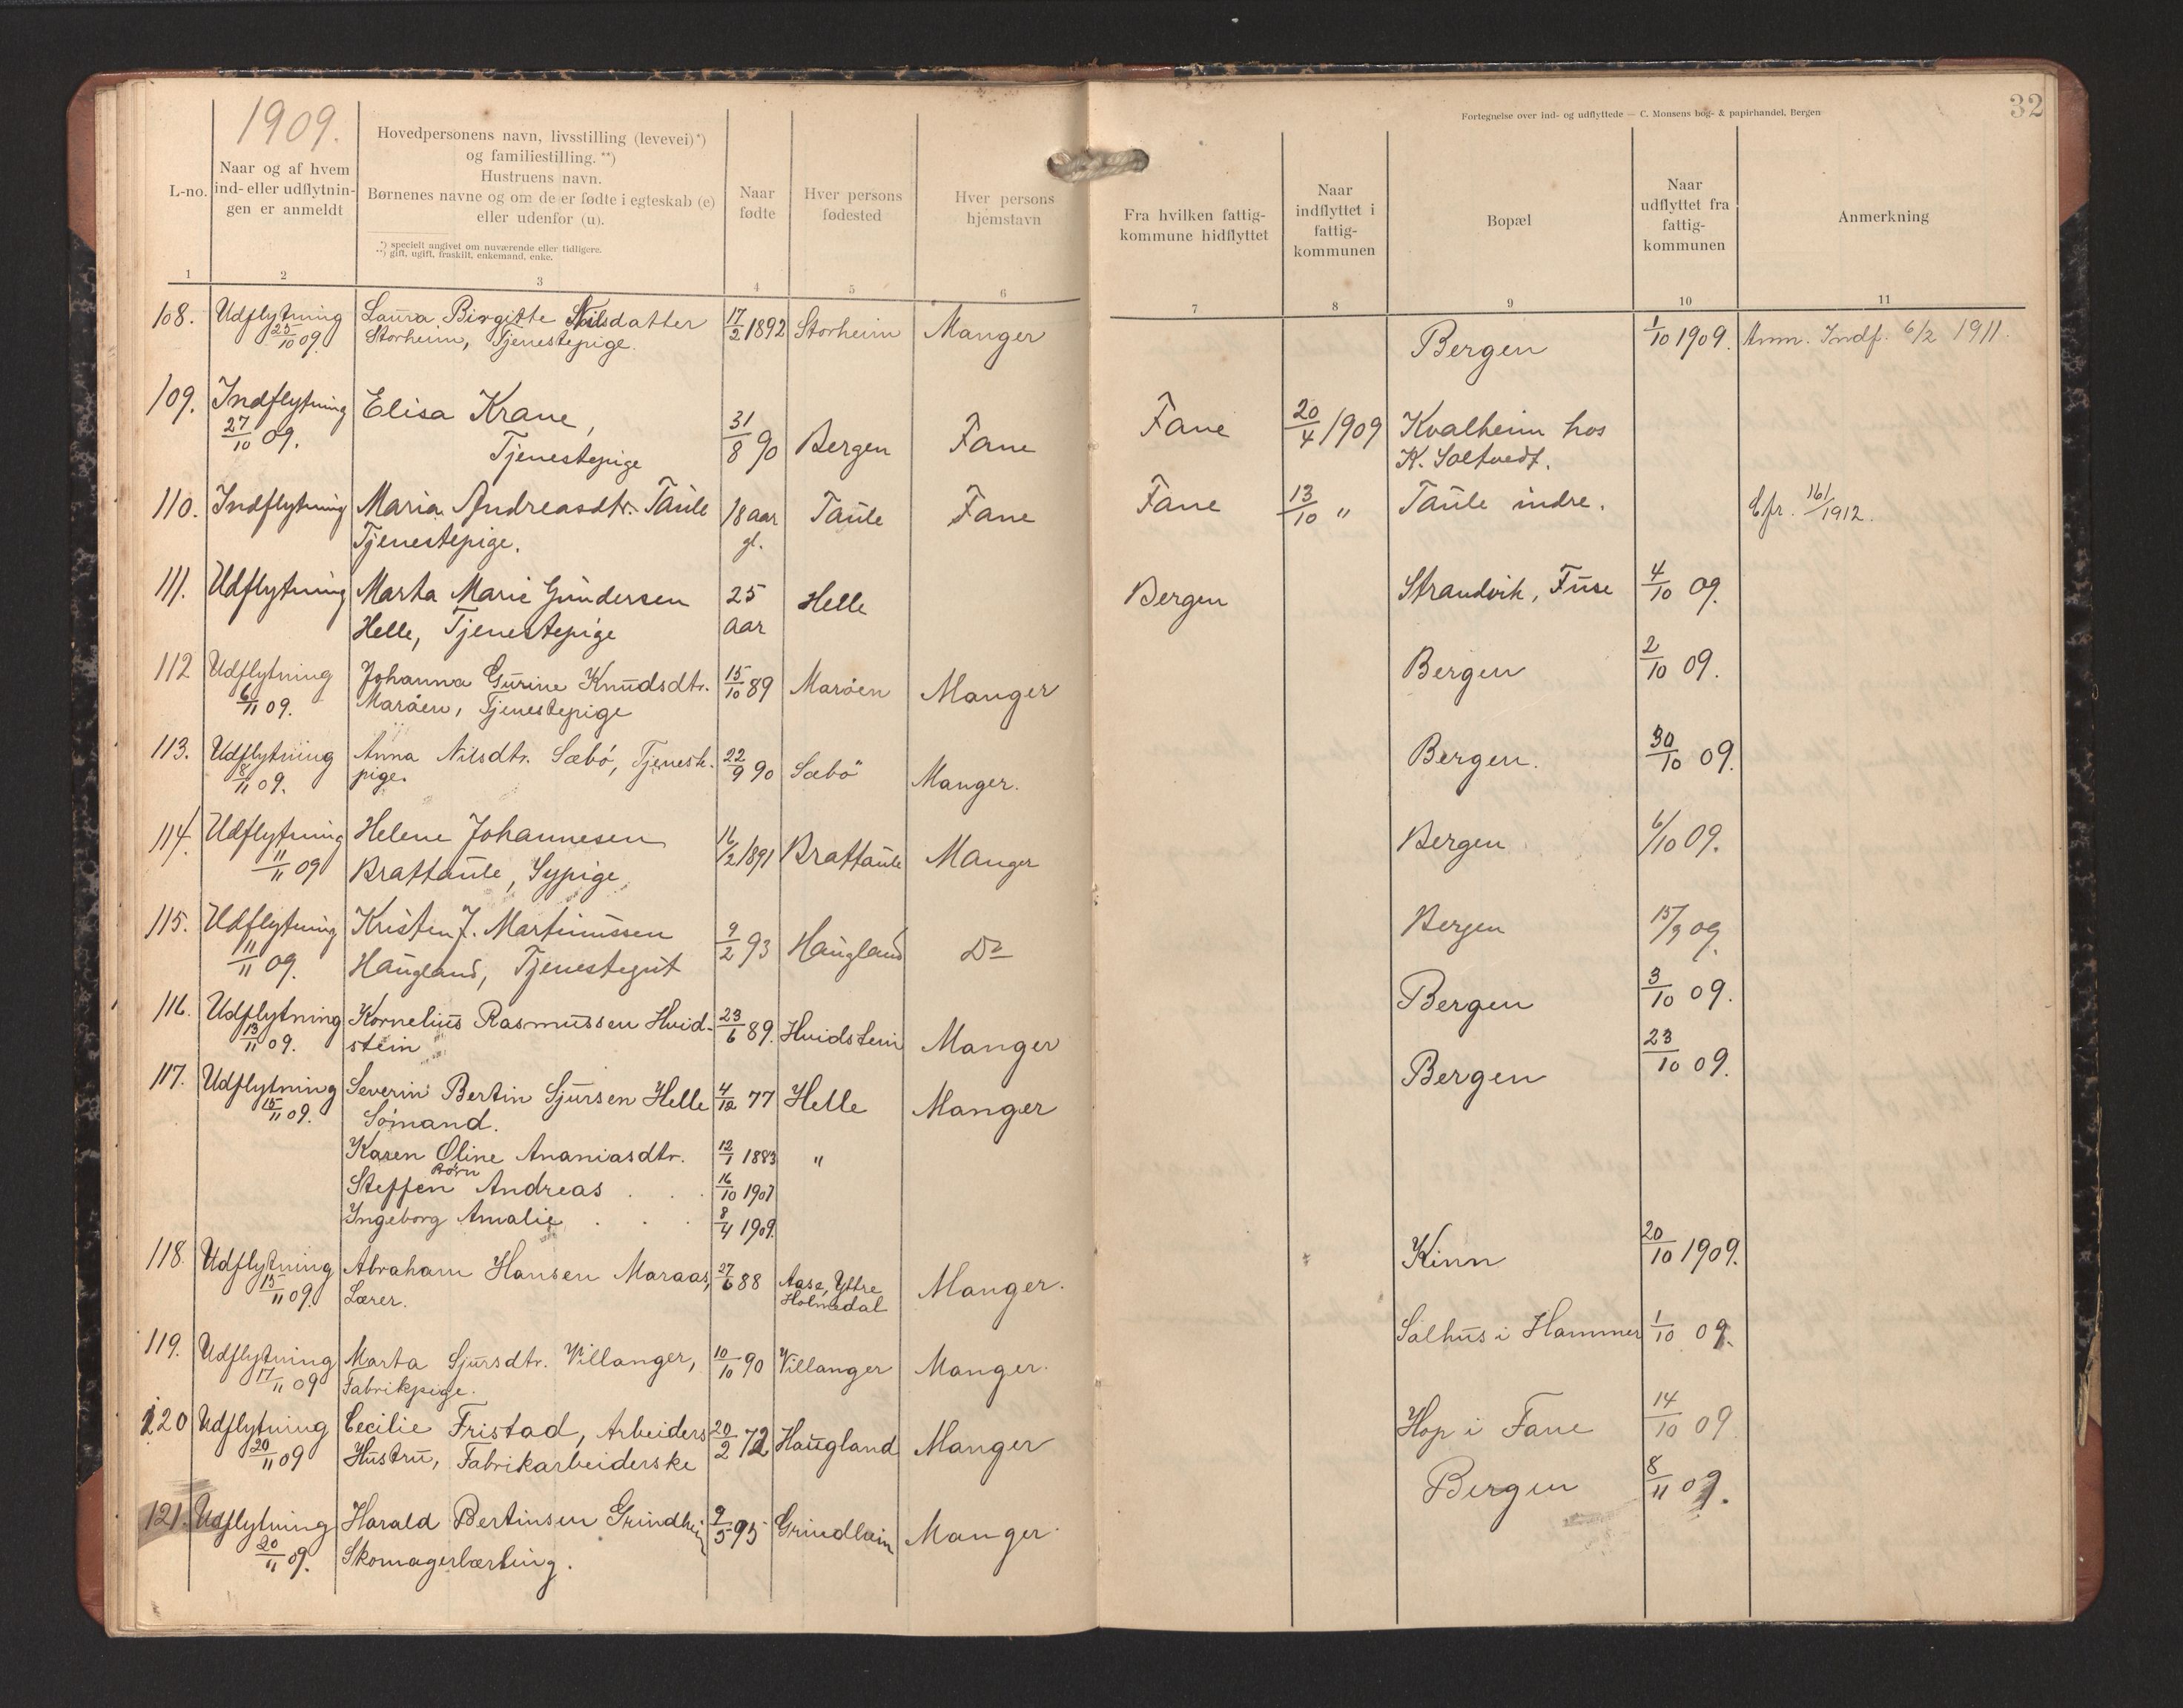 1909.
32
Fortegnelse over ind- og udflyttede — C. Monsens bog- & papirhandel, Bergen
L-no.
Naar og af hvem
ind- eller udflytnin-
gen er anmeldt
Hovedpersonens navn, livsstilling (levevei)*)
og familiestilling. **)
Hustruens navn.
Børnenes navne og om de er fødte i egteskab (e)
eller udenfor (u).
*) specielt angivet om nuværende eller tidligere.
**) gift, ugift, fraskilt, enkemand, enke.
Naar
fødte
Hver persons
fødested
Hver persons
hjemstavn
Fra hvilken fattig-
kommune hidflyttet
Naar
indflyttet i
fattig-
kommunen
Bopæl
Naar
udflyttet fra
fattig-
kommunen
Anmerkning
1 2 3 4 5 6 7 8 9 10 11
108. Udflytning Laura Birgitte Nilsdatter 17/2 1892 Storheim Manger Bergen 1/10 1909. Anm. Indf. 6/2 1911.
25/10 09. Storheim, Tjenestepige.
109. Indflytning Elisa Krane, 31/8 90 Bergen Fane Fane 20/4 1909 Kvalheim hos
27/10 09. Tjenestepige K. Soltvedt.
110. Indflytning Maria Andreasdtr. Taule 18 aar Taule Fane Fane 13/10 " Taule indre. Cfr. 161/1912.
Tjenestepige. gl.
111. Udflytning Marta Marie Gundersen 25 Helle Bergen Strandvik, Fuse 4/10 09.
Helle, Tjenestepige aar
112 Udflytning Johanna Gurine Knudsdtr. 15/10 89 Marøen Manger Bergen 2/10 09.
6/11 09. Marøen, Tjenestepige
113. Udflytning Anna Nilsdtr. Sæbø, Tjenest- 22/9 90 Sæbø Manger. Bergen. 30/10 09.
8/11 09. pige.
114. Udflytning Helene Johannesen 16/2 1891 Brattaule Manger Bergen 6/10 09.
11/11 09 Brattaule, Sypige
115. Udflytning Kristen J. Martinussen 9/2 93 Haugland Do Bergen 15/9 09.
11/11 09. Haugland, Tjenestegut
116. Udflytning Kornelius Rasmussen Hvid- 23/6 89. Hvidstein Manger Bergen 3/10 09.
13/11 09. stein
117. Udflytning Severin Bertin Sjursen Helle 4/12 77 Helle Manger Bergen 23/10 09.
15/11 09. Sømand.
Karen Oline Ananiasdtr. 12/1 1883 "
Børn
Steffen Andreas . . . 16/10 1907
Ingeborg Amalie . . . 8/4 1909.
118. Udflytning Abraham Hansen Maraas, 27/6 88 Aase, Yttre Manger. Kinn 20/10 1909.
15/11 09. Lærer. Holmedal
119. Udflytning Marta Sjursdtr. Villanger, 10/10 90 Villanger Manger. Salhus i Hammer 1/10 09.
17/11 09 Fabrikpige.
120 Udflytning Cecilie Fristad, Arbeiders 20/2 72 Haugland Manger Hop i Fane 14/10 09
20/11 09 Hustru, Fabrikarbeiderske
121. Udflytning Harald Bertinsen Grindheim 9/5 95 Grindheim Manger. Bergen 8/11 09.
20/11 09. Skomagerlærling.